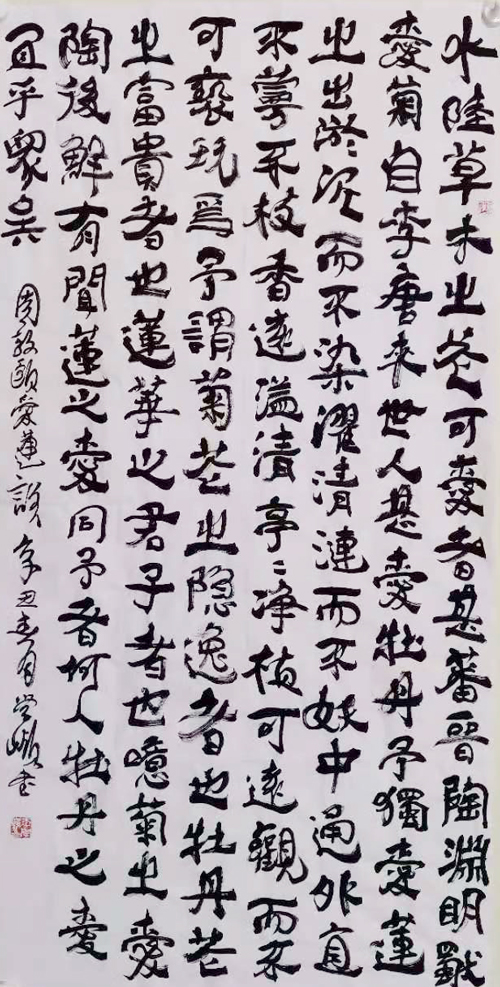 水陸草木之花可愛者甚蕃晉陶淵明獨
愛菊自李唐來世人甚愛牡丹予獨愛蓮
之出淤泥而不染濯清漣而不妖中通外直
不蔓不枝香遠溢清亭〻淨植可遠觀而不
可褻玩焉予謂菊花之隐逸者也牡丹花
之富貴者也蓮華之君子者也噫菊之愛
陶後鮮有聞蓮之愛同予者何人牡丹之愛
宜乎眾矣
周敦頤愛蓮說辛丑春月書